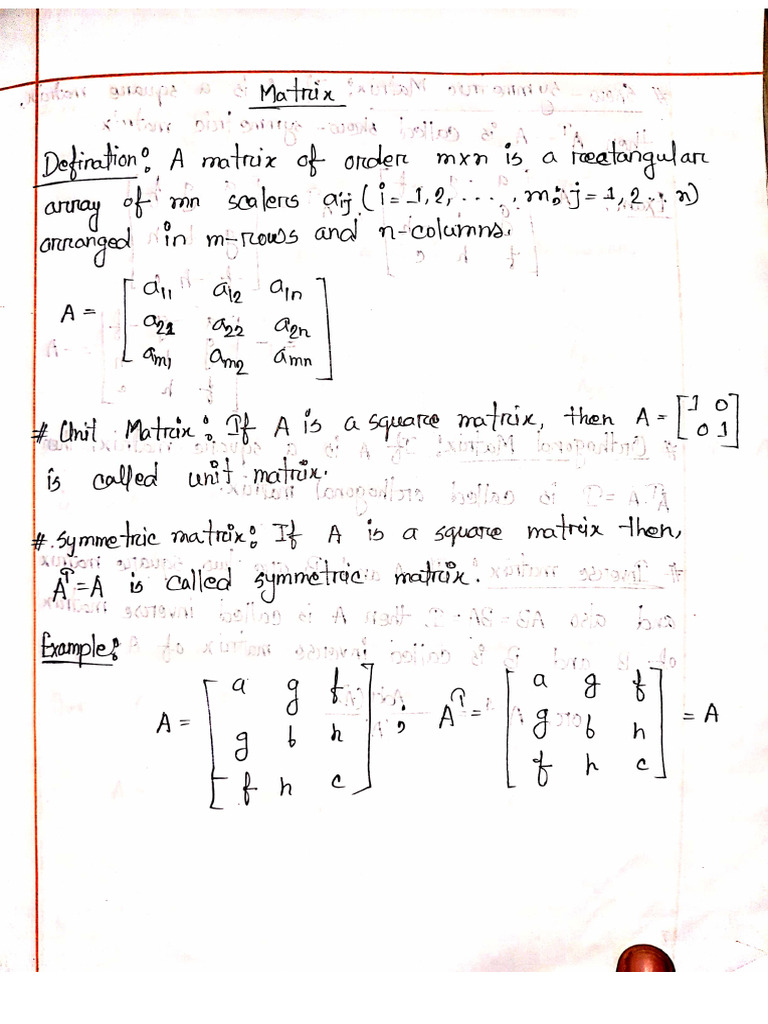 Matrix
Defination: A matrix of order m×n is a rectangular
array of mn scalers aij (i=1,2,....., m; j=1,2...n)
arranged in m-rows and n-columns.
A = [ a11 a12 a1n
a21 a22 a2n
am1 am2 amn ]
# Unit Matrix: If A is a square matrix, then A = [1 0
0 1]
is called unit matrix.
#. Symmetric matrix: If A is a square matrix then,
A^T = A is called symmetric matrix.
Example:
A = [ a g f ; A^T = [ a g f = A
g b h g b h
f h c ] f h c ]